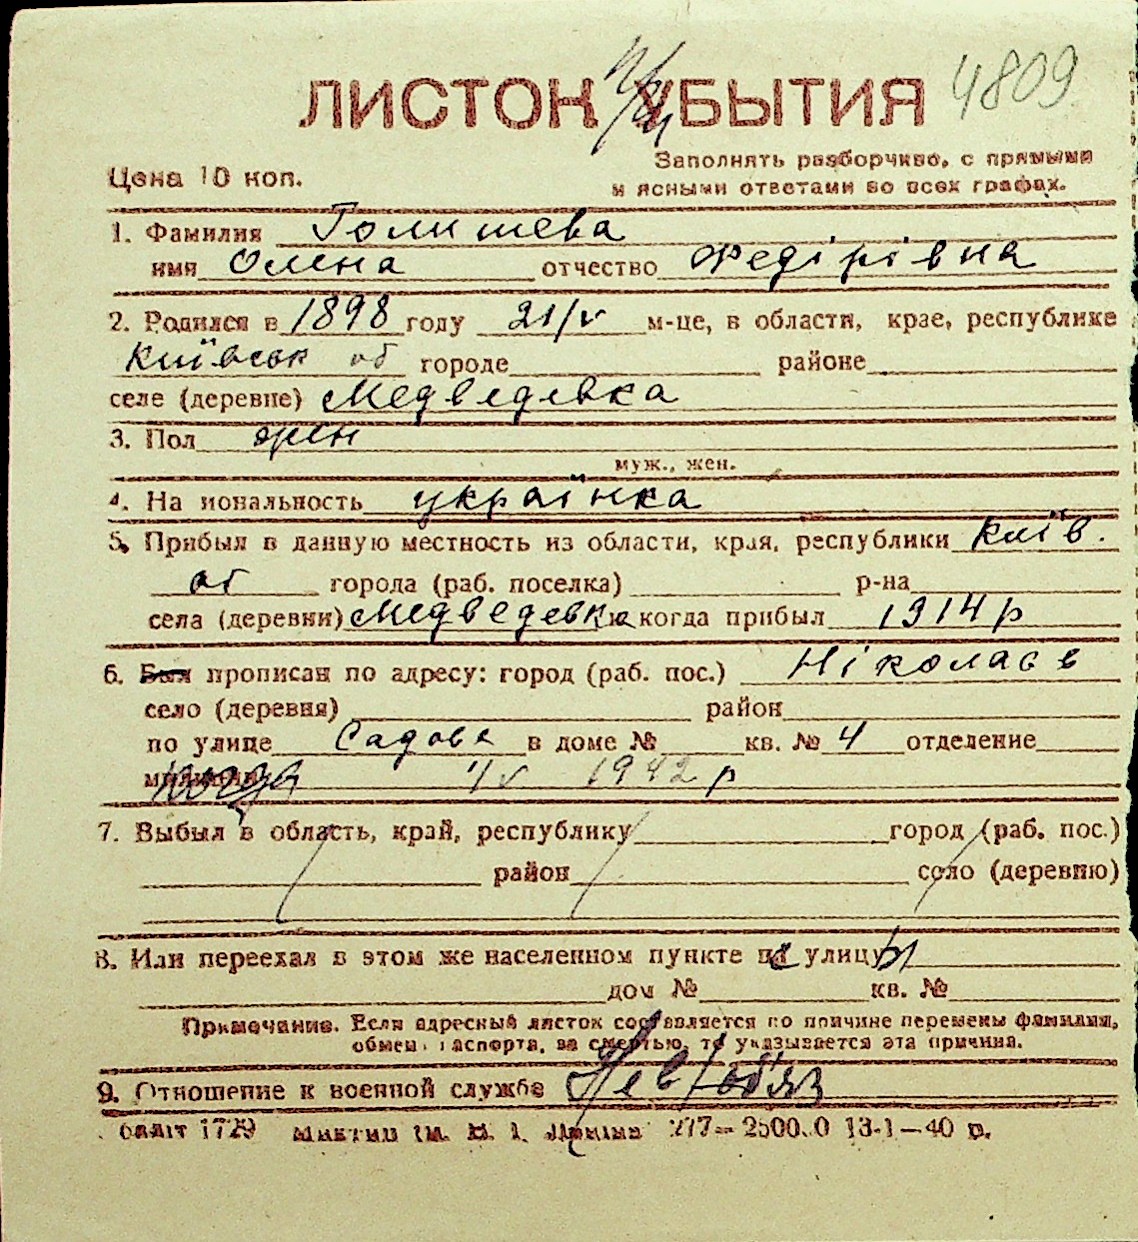 ЛИСТОК УБЫТИЯ 4809
Заполнять разборчиво, с прямыми
Цена 10 коп. и ясными ответами во всех графах.
1. Фамилия Голишева
имя Олена отчество Федірівна
2. Родился в 1898 году 21/V м-це, в области, крае, республике
Київськ об городе районе
селе (деревне) Медведевка
3. Пол жен
муж., жен.
4. На иональность українка
5. Прибыл в данную местность из области, края, республики Київ.
об города (раб. поселка) р-на
села (деревни) Медведевка когда прибыл 1914 р
6. Был прописан по адресу: город (раб. пос.) Ніколаєв
село (деревня) район
по улице Садова в доме № кв. № 4 отделение
когда 1942 р
7. Выбыл в область, край, республику город (раб. пос.)
район село (деревню)
8. Или переехал в этом же населенном пункте улицы
дом № кв. №
Примечание. Если адресный листок составляется по причине перемены фамилии,
обмен паспорта, за смертью, то указывается эта причина.
9. Отношение к военной службе Невтоб'яз
1729 277— 13-1—40 р.